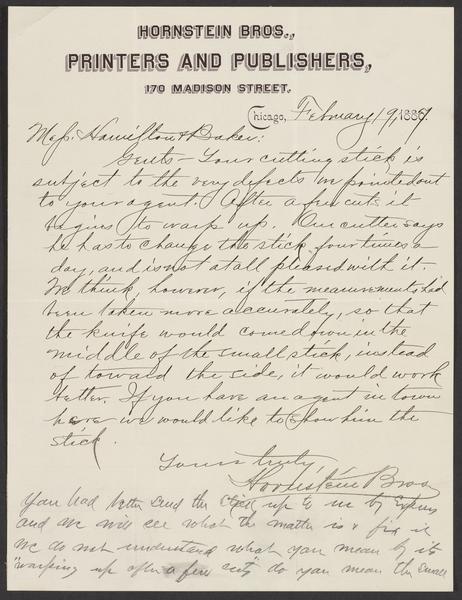 HORNSTEIN BROS.,
PRINTERS AND PUBLISHERS,
170 MADISON STREET.
Chicago, February 19, 1887
Mess. Hamilton & Baker:
Gents – Your cutting stick is
subject to the very defects we pointed out
to your agent. After a few cuts it
begins to warp up. Our cutter says
he has to change the stick four times a
day, and is not at all pleased with it.
We think, however, if the measurements had
been taken more accurately, so that
the knife would come down in the
middle of the small stick, instead
of toward the side, it would work
better. If you have an agent in town
here we would like to show him the
stick.
Yours truly
Hornstein Bros
You had better send the stick up to us by Express
and we will see what the matter is & fix it
We do not understand what you mean by its
"warping up after a few cuts" do you mean the small